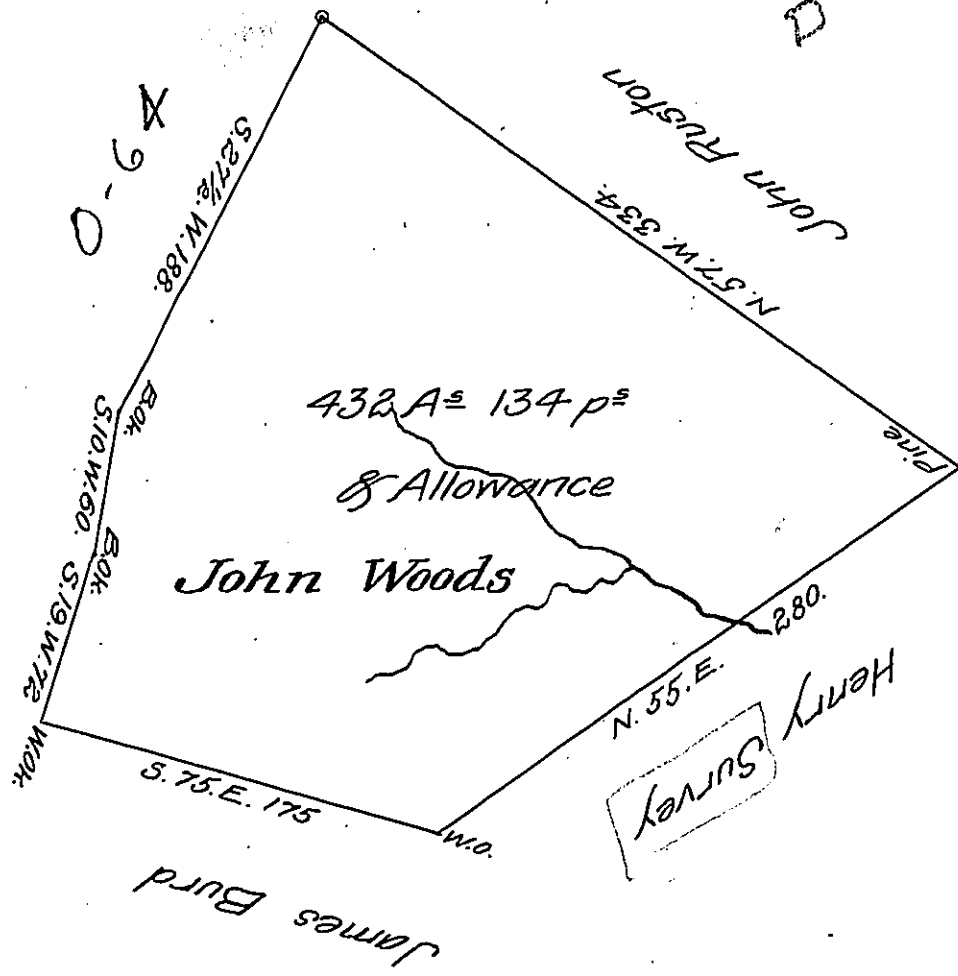 John Ruston
N. 57. W. 334.
S. 27½. W. 188.
B.Ok.
S. 10. W. 60.
B.Ok.
S. 19. W. 72
W.Ok.
432 Aˢ 134 pˢ
& Allowance
John Woods
Pine
280.
N. 55. E.
Henry
Survey
S. 75. E. 175
W.O.
James Burd